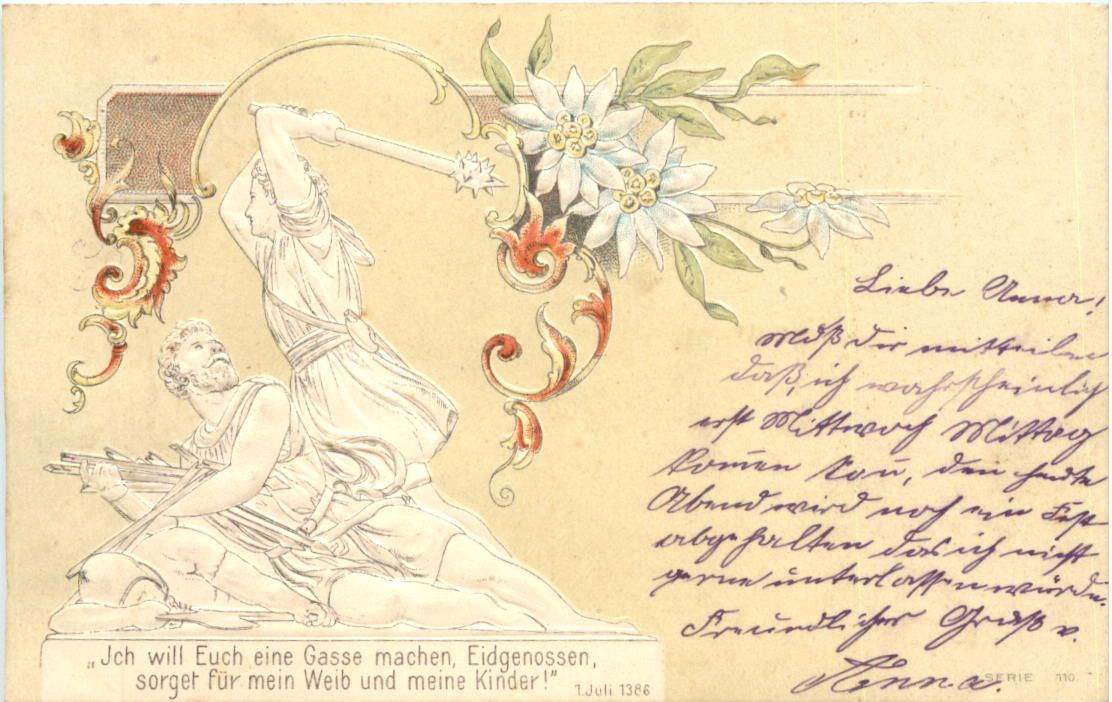 Liebe Anna!
Muß dir mitteilen
daß, ich wahrscheinlich
erst Mittwoch Mittag
komen kan, den heute
Abend wird noch ein Fest
abgehalten das ich nicht
gerne unterlassen würde.
Freundlicher Gruß v.
„Jch will Euch eine Gasse machen, Eidgenossen,
sorget für mein Weib und meine Kinder!"
1. Juli 1386
SERIE 110.